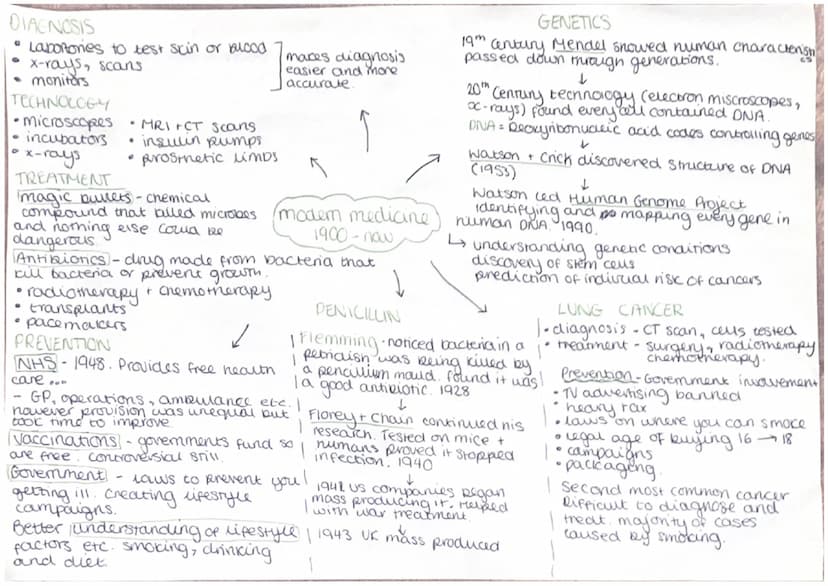 DIAGNOSIS
• Labortories to test skin or blood
• x-rays, scans
• monitors
makes diagnosis
easier and more
accurate.
TECHNOLOGY
• microscopes
• incubators
• x-rays
• MRI + CT scans
• insulin pumps
• prosthetic limbs
TREATMENT
magic bullets - chemical
compound that killed microbes
and nothing else could be
dangerous
Antibiotics - drug made from bacteria that
kill bacteria or prevent growth.
• radiotherapy + chemotherapy
• transplants
• pacemakers
PREVENTION
NHS - 1948. Provides free health
care ...
- GP, operations, ambulance etc.
however provision was unequal but
took time to improve.
Vaccinations - governments fund so
are free. controversial still.
Government - laws to prevent you
getting ill. creating lifestyle
campaigns.
Better understanding of lifestyle
factors etc. smoking, drinking
and diet.
modern medicine
1900 - now
PENICILLIN
Flemming - noticed bacteria in a
petridish was being killed by
a pencillium mould. found it was
a good antibiotic. 1928
↓
Florey + Chain continued his
research. Tested on mice +
humans proved it stopped
infection. 1940
↓
1941 US companies began
mass producing it. Helped
with war treatment.
↓
1943 UK mass produced
GENETICS
19th century Mendel showed human characteristics
passed down through generations.
↓
20th century technology (electron miscroscopes,
x-rays) found every cell contained DNA.
DNA = Deoxyribonucleic acid codes controlling genes
↓
Watson + Crick discovered structure of DNA
(1953)
↓
Watson led Human Genome Project
identifying and mapping every gene in
human DNA. 1990.
↳ understanding genetic conditions
discovery of stem cells
prediction of indiviual risk of cancers
LUNG CANCER
• diagnosis - CT scan, cells tested
• treatment - surgery, radiotherapy
chemotherapy.
Prevention - Government involvement
• TV advertising banned
• heavy tax
• laws on where you can smoke
• legal age of buying 16 → 18
• campaigns
• packaging.
Second most common cancer
Difficult to diagnose and
treat. majority of cases
caused by smoking.